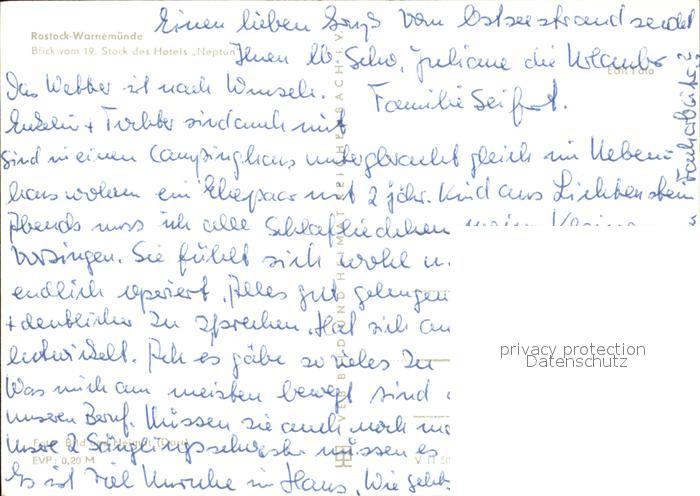 Einen lieben Gruß vom Ostseestrand sendet
Rostock-Warnemünde
Blick vom 19. Stock des Hotels „Neptun"
Ihnen lb. Schw. Juliane die Urlauber
Das Wetter ist nach Wunsch. Familie Seifert.
Enkelin + Tochter sind auch mit
sind in einem Campinghaus untergebracht gleich im Neben-
haus wohnen ein Ehepaar mit 2 jähr. Kind aus Lichtenstein
Abends muss ich alle Schlafliedchen meiner Kleinen
vorsingen. Sie fühlt sich wohl
endlich operiert. Alles gut gelungen
+ deutlicher zu sprechen. Hat sich
entwickelt. Ach es gäbe so vieles zu
Was mich am meisten bewegt sind
unseren Beruf. Müssen sie auch noch
unsere 2 Säuglingsschwester müssen es
EVP: 0,20 M
Es ist viel Unruhe im Haus. Wie geht
privacy protection
Datenschutz